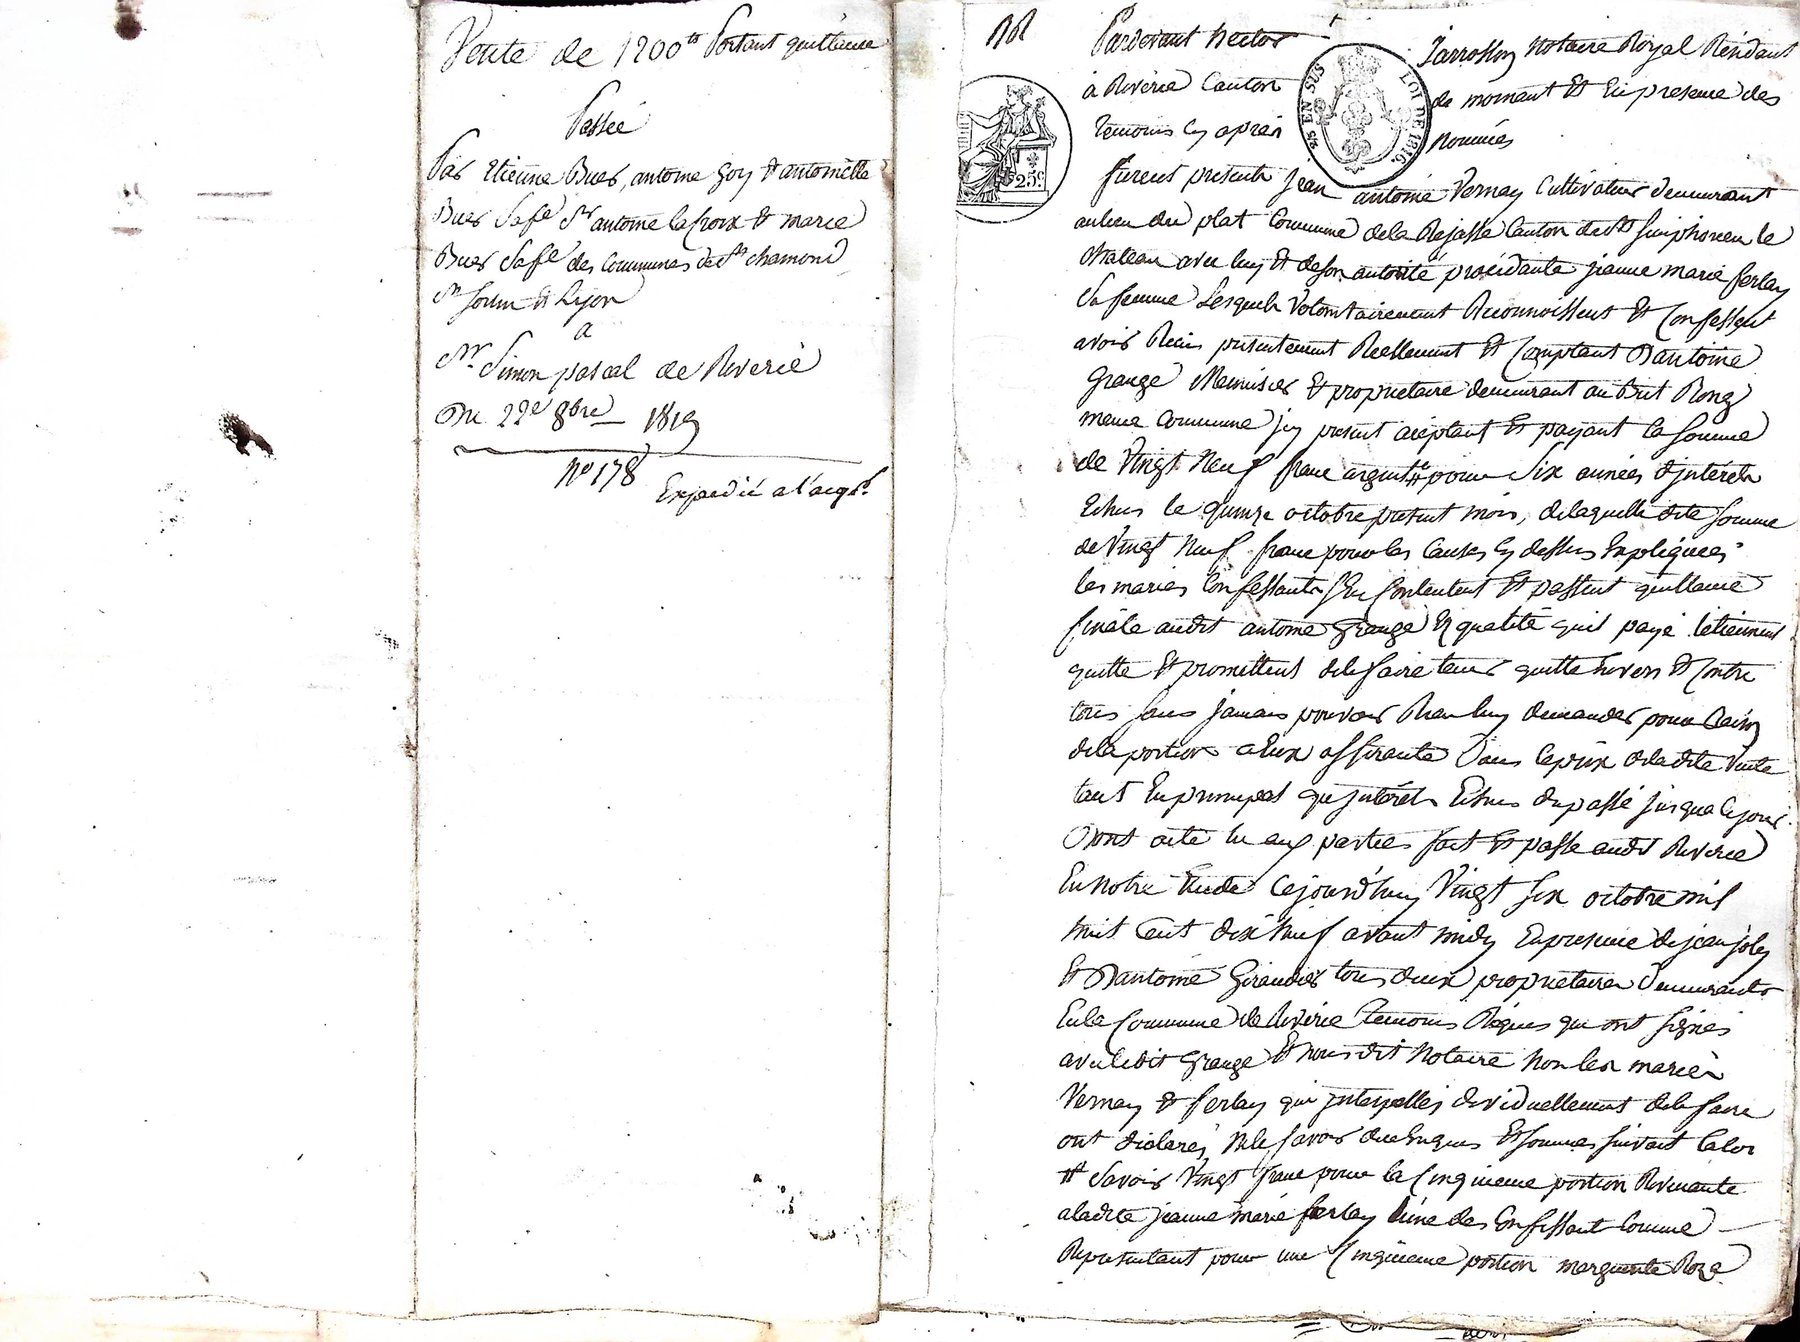 Vente de 1200 tt Portant quittance
Passée
Par Etienne Buer, antoine Goy & antoinette
Buer Sa fe Sr antoine lacroix & marie
Buer Sa fe des Communes de St chamond
St Sorlin & Lyon
a
Mr Simon pascal de Riverie
Du 22e 8bre 1819
No 178
Expedié a l'acqr.
Pardevant hector Jarrosson Notaire Royal Résidant
à Riverie Canton de mornant Et En presence des
temoins cy après Nommés
25 EN SUS
LOI DE 1816.
25c
furent présents Jean antoine Vernay Cultivateur demeurant
au lieu du plat Commune de la Rajasse Canton de St Simphorien le
chateau avec luy Et de son autorité procédante jeanne marie ferlay
Sa femme Lesquels Volontairement Reconnoissent Et Confessent
avoir Recu présentement Réellement Et Comptant D'antoine
Grange Menuisier Et proprietaire demeurant au Brit Rong
meme Commune jcy présent acceptant Et payant la Somme
de Vingt Neuf franc argent pour Six années d'jntérêts
Echus le quinze octobre présent mois, de laquelle dite Somme
de Vingt Neuf franc pour les Causes cy dessus Expliquées
les mariés Confessants S'En Contentent Et passent quittance
finale audit antoine Grange En qualité qu'il paye le tiennent
quitte Et promettent de le faire tenir quitte Envers Et Contre
tous sans jamais pouvoir Rien luy demander pour Raison
de la portion a Eux afférante Dans le prix de la dite Vente
tant En principal qu'jntérêts Echus du passé jusqua ce jour.
Dont acte lu aux parties fait Et passé audit Riverie
En Notre Etude Cejourd'huy Vingt Six octobre mil
huit Cent dix Neuf avant midy En presence de jean joly
Et D'antoine Giraudier tous deux proprietaires Demeurants
En la Commune de Riverie temoins Réquis qui ont Signés
avec ledit Grange Et Nous dit Notaire Non les mariés
Vernay & ferlay qui jnterpellés dividuellement de le faire
ont declarés Ne le Savoir de ce Enquis Et Sommés Suivant la loi
Savoir Vingt franc pour la Cinquieme portion Revenante
a ladite jeanne marie ferlay L'une des Confessant Comme
Représentant pour une Cinquieme portion marguerite Roze